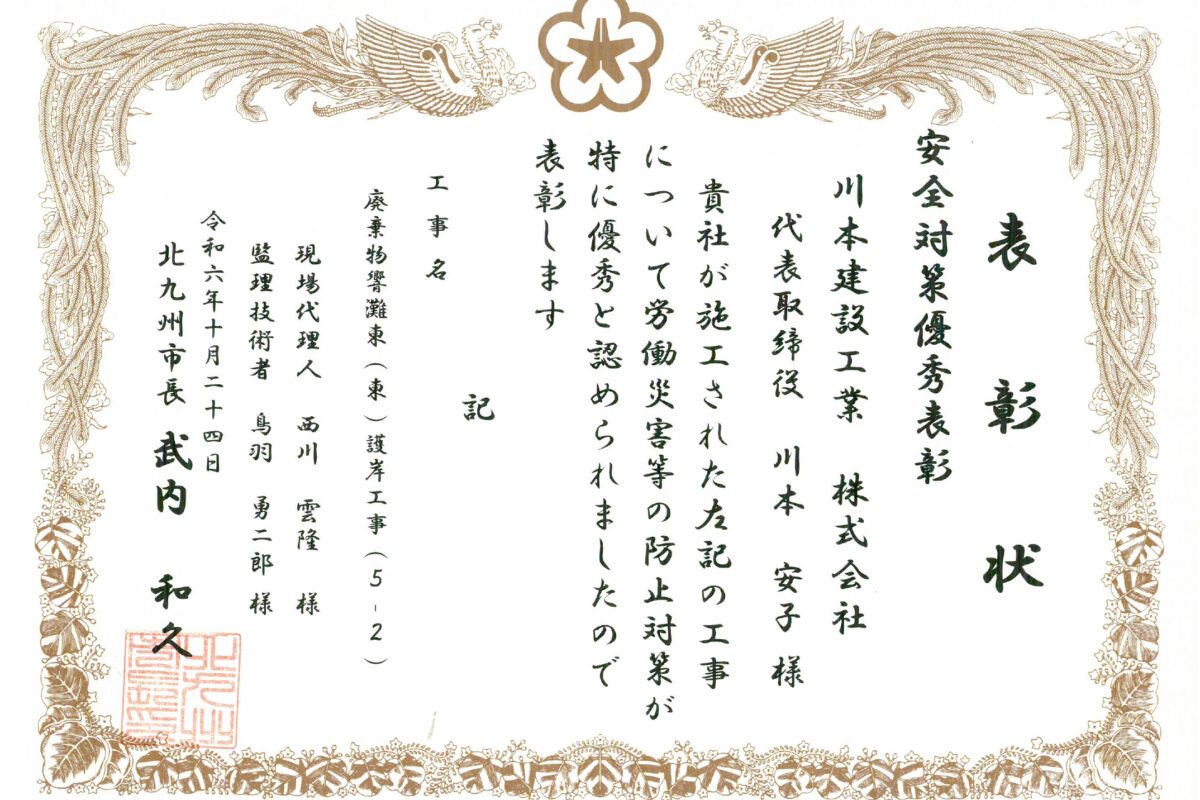 表彰状
安全対策優秀表彰
川本建設工業 株式会社
代表取締役 川本 安子 様
貴社が施工された左記の工事
について労働災害等の防止対策が
特に優秀と認められましたので
表彰します
記
工事名
廃棄物響灘東(東)護岸工事(5-2)
現場代理人 西川 雲隆 様
監理技術者 鳥羽 勇二郎 様
令和六年十月二十四日
北九州市長 武内 和久